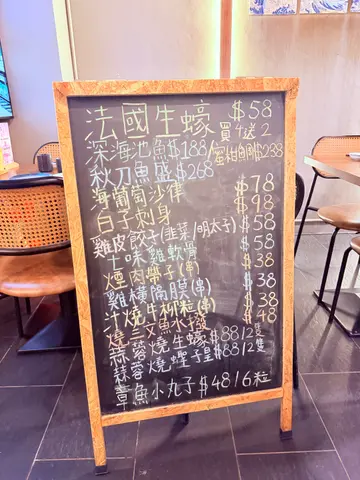 法國生蠔 $58
買4送2
深海池魚$188/蜜柑自鯛$288
秋刀魚盛$268
海葡萄沙律 $78
白子刺身 $98
雞皮餃子(韭菜/明太子) $58
七味雞軟骨 $58
煙肉學子(串) $38
雞橫隔膜(串) $38
汁燒牛柳粒(串) $38
燒三文魚水撥 $48
蒜蓉燒生蠔$88/2隻
蒜蓉燒蟶子皇$88/2隻
章魚小丸子$48/6粒